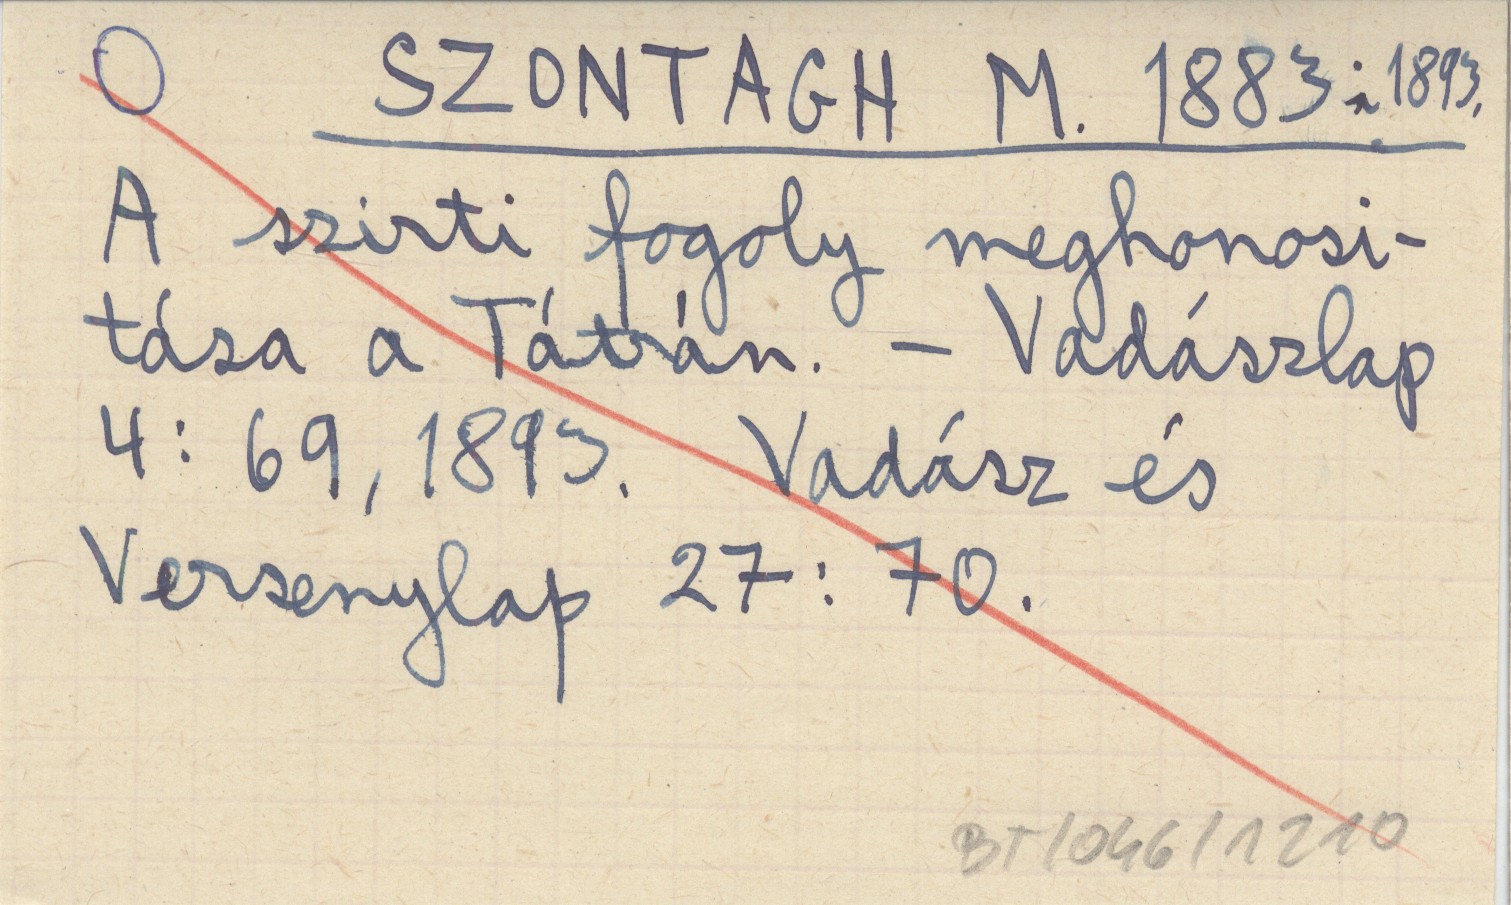 O SZONTAGH M. 1883; 1893.
A szirti fogoly meghonosi-
tása a Tátrán. – Vadászlap
4: 69, 1893. Vadász és
Versenylap 27: 70.
BT/046/1210